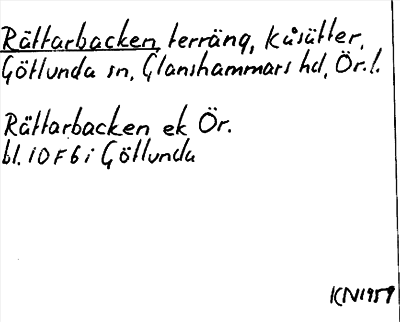 Rättarbacken, terräng, Kusätter,
Götlunda sn, Glanshammars hd, Ör. l.
Rättarbacken ek Ör.
bl. 10 F 6 i Götlunda
KN 1959